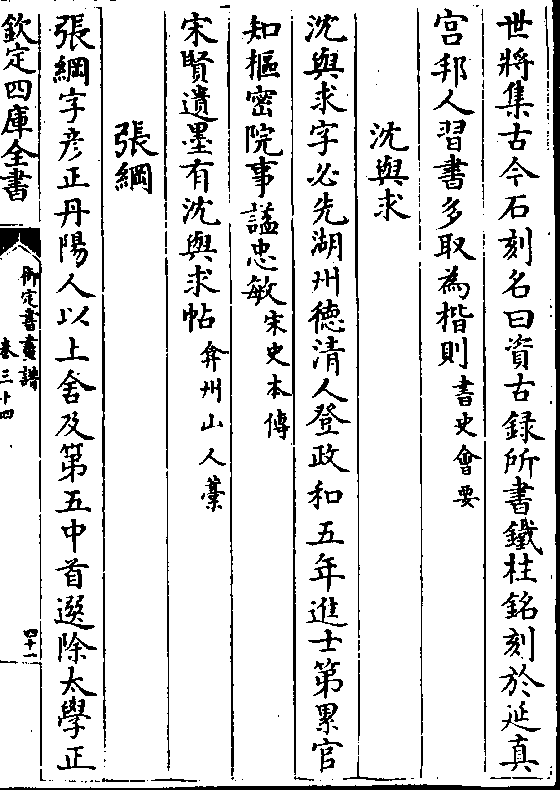 世將集古今石刻名曰資古録所書鐵柱銘刻於延真
宫邦人習書多取為楷則書史會要
沈與求
沈與求字必先湖州徳清人登政和五年進士第累官
知樞密院事諡忠敏宋史本傳
宋賢遺墨有沈與求帖弇州山人藁
張綱
張綱字彦正丹陽人以上舍及第五中首選除太學正
欽定四庫全書
御定書畫譜
卷三十四
四十一